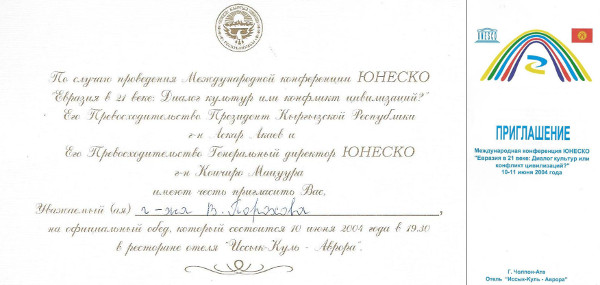 По случаю проведения Международной конференции ЮНЕСКО
"Евразия в 21 веке: Диалог культур или конфликт цивилизаций?"
Его Превосходительство Президент Кыргызской Республики
г-н Аскар Акаев и
Его Превосходительство Генеральный директор ЮНЕСКО
г-н Коичиро Мацуура
имеют честь пригласить Вас,
Уважаемый (ая) г-жа В. Порохова,
на официальный обед, который состоится 10 июня 2004 года в 19.30
в ресторане отеля "Иссык-Куль - Аврора".
ПРИГЛАШЕНИЕ
Международная конференция ЮНЕСКО
"Евразия в 21 веке: Диалог культур или
конфликт цивилизаций?"
10-11 июня 2004 года
Г. Чолпон-Ата
Отель "Иссык-Куль - Аврора"